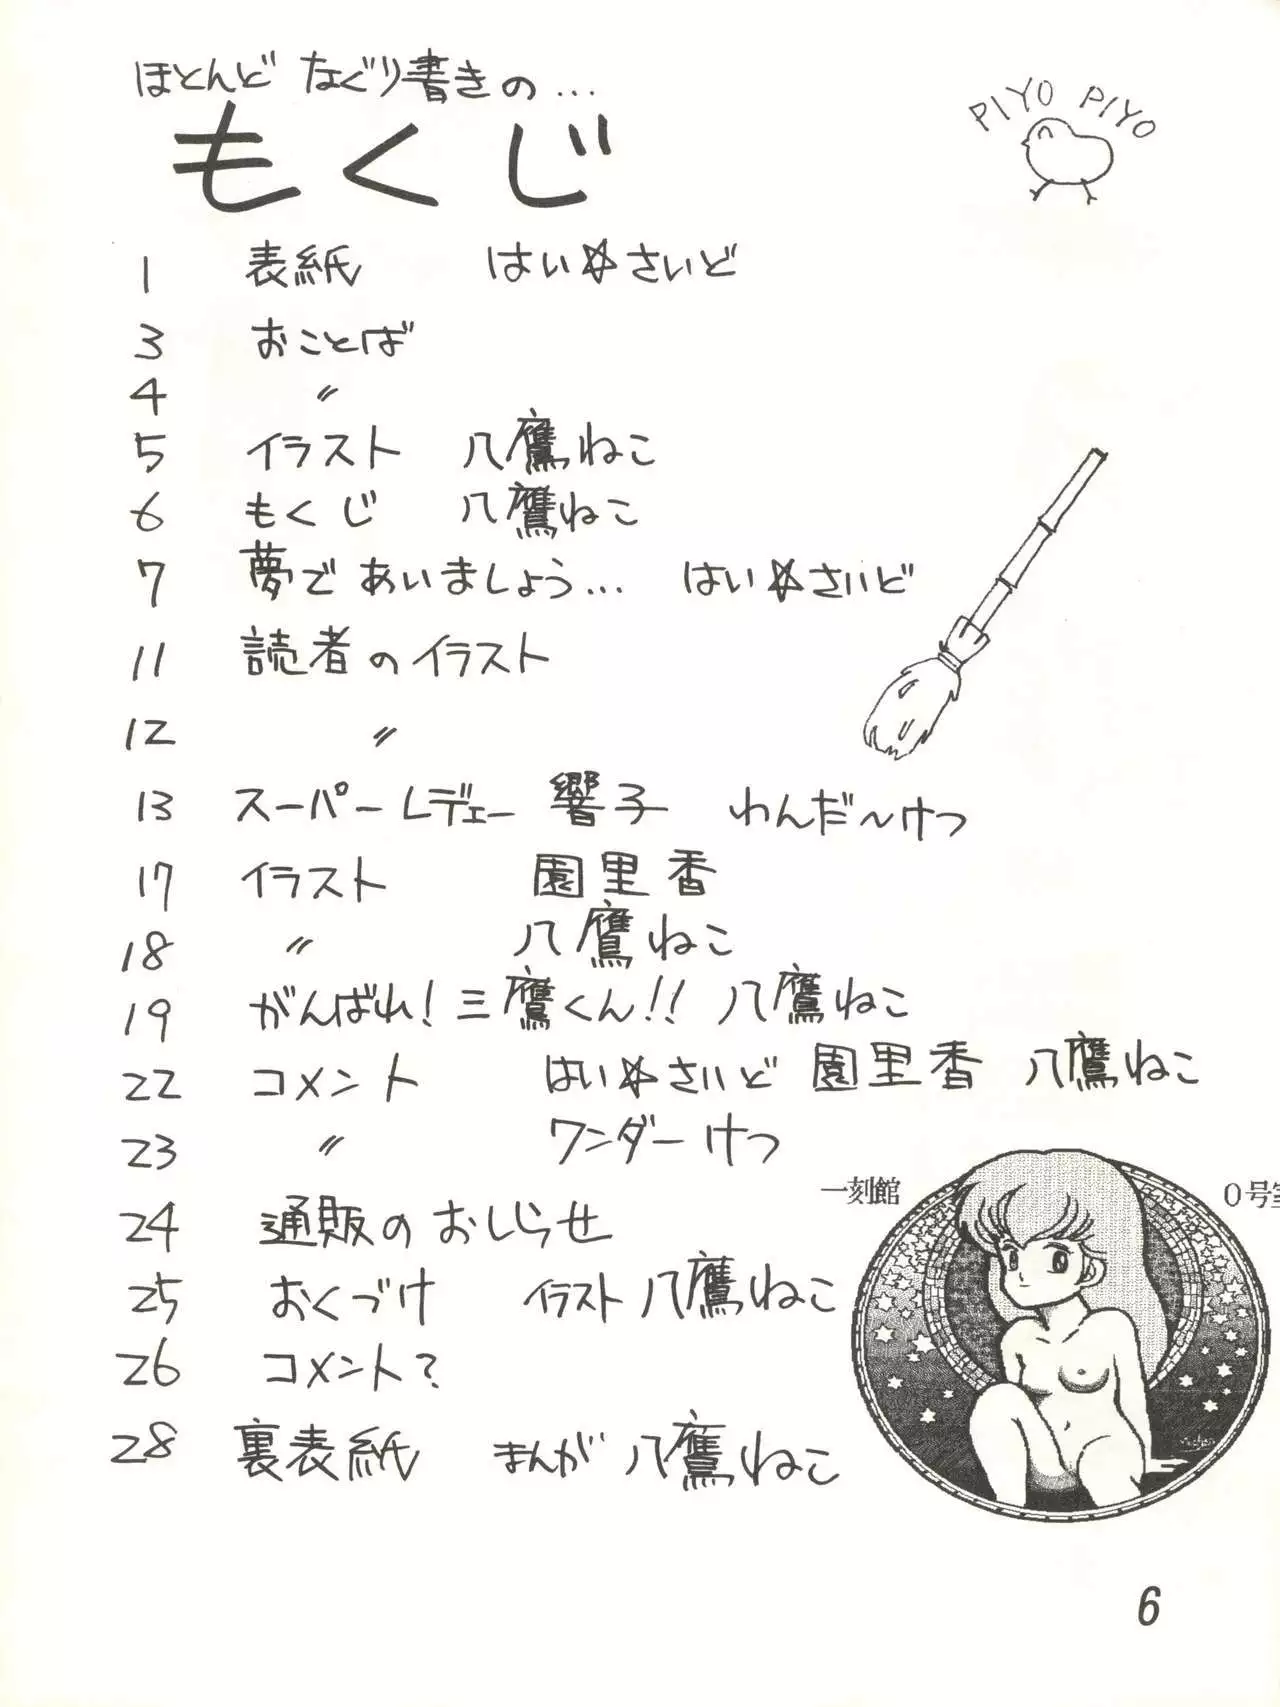 ほとんど なぐり書きの...
もくじ
PIYO PIYO
1 表紙 はい☆さいど
3 おことば
4 〃
5 イラスト 八鷹ねこ
6 もくじ 八鷹ねこ
7 夢であいましょう... はい☆さいど
11 読者のイラスト
12 〃
13 スーパーレディー 響子 わんだ〜けつ
17 イラスト 園里香
18 〃 八鷹ねこ
19 がんばれ!三鷹くん!! 八鷹ねこ
22 コメント はい☆さいど 園里香 八鷹ねこ
23 〃 ワンダーけつ
一刻館 0号室
24 通販のおしらせ
25 おくづけ イラスト 八鷹ねこ
26 コメント?
28 裏表紙 まんが 八鷹ねこ
6